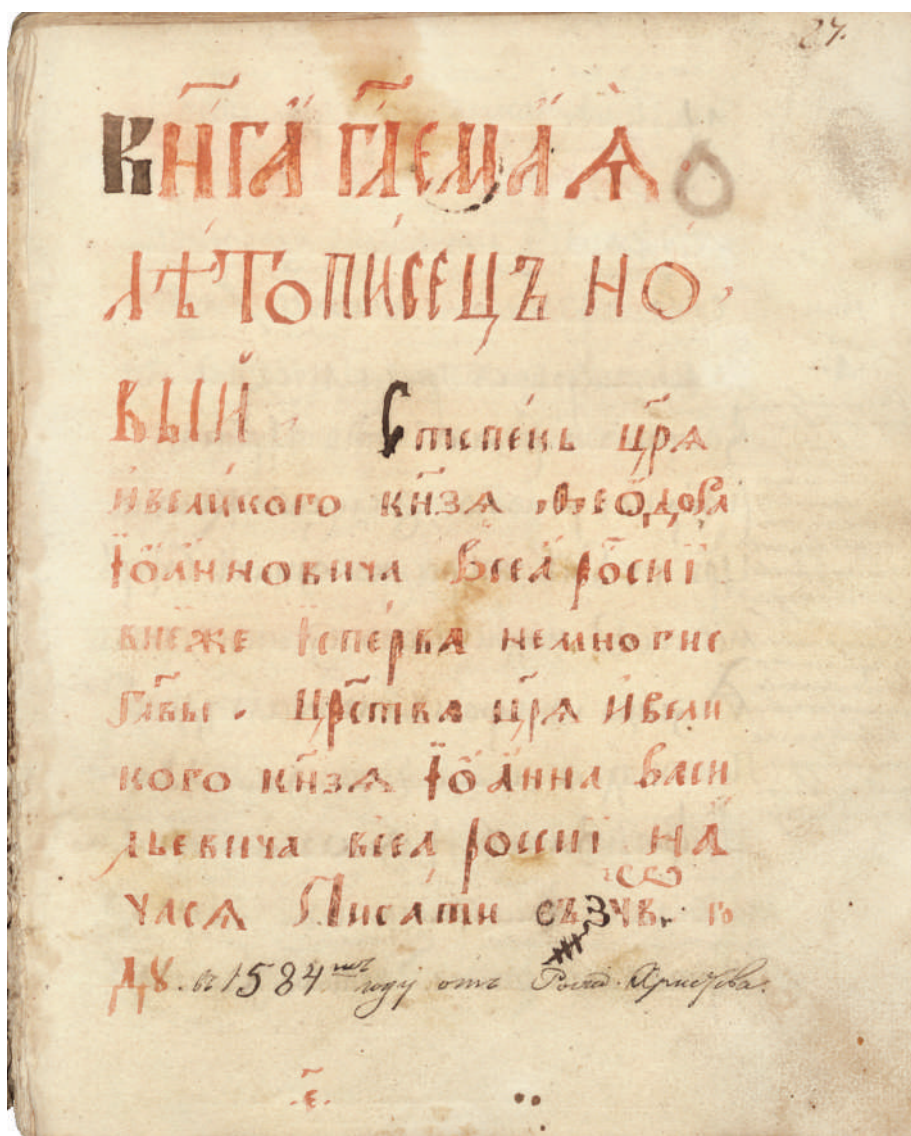 27.
Кн҃га гл҃емаѧ
лѣтописецъ но
выи. Степень цр҃ѧ
ивеликого кн҃зѧ Ѳеѡдора
Іѡанновича всеа росиї
внеже исперва немногие
главы. цр҃ства цр҃ѧ ивели
кого кн҃зѧ Іѡанна васи
льевича всеа россиї на
часѧ писати съ зчв. го
дꙋ. въ 1584мъ году отъ Рожд. Христова.
.є҃.